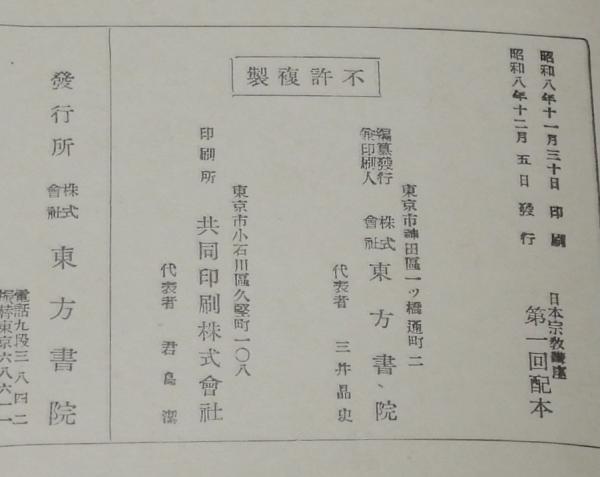 昭和八年十一月三十日 印刷
昭和八年十二月五日 發行
日本宗教講座
第一回配本
不許複製
東京市神田區一ッ橋通町二
編纂發行
兼印刷人
株式
會社
東方書院
代表者 三井晶史
東京市小石川區久堅町一〇八
印刷所 共同印刷株式會社
代表者 君島潔
發行所
株式
會社
東方書院
電話九段三八四二
振替東京六八六一一